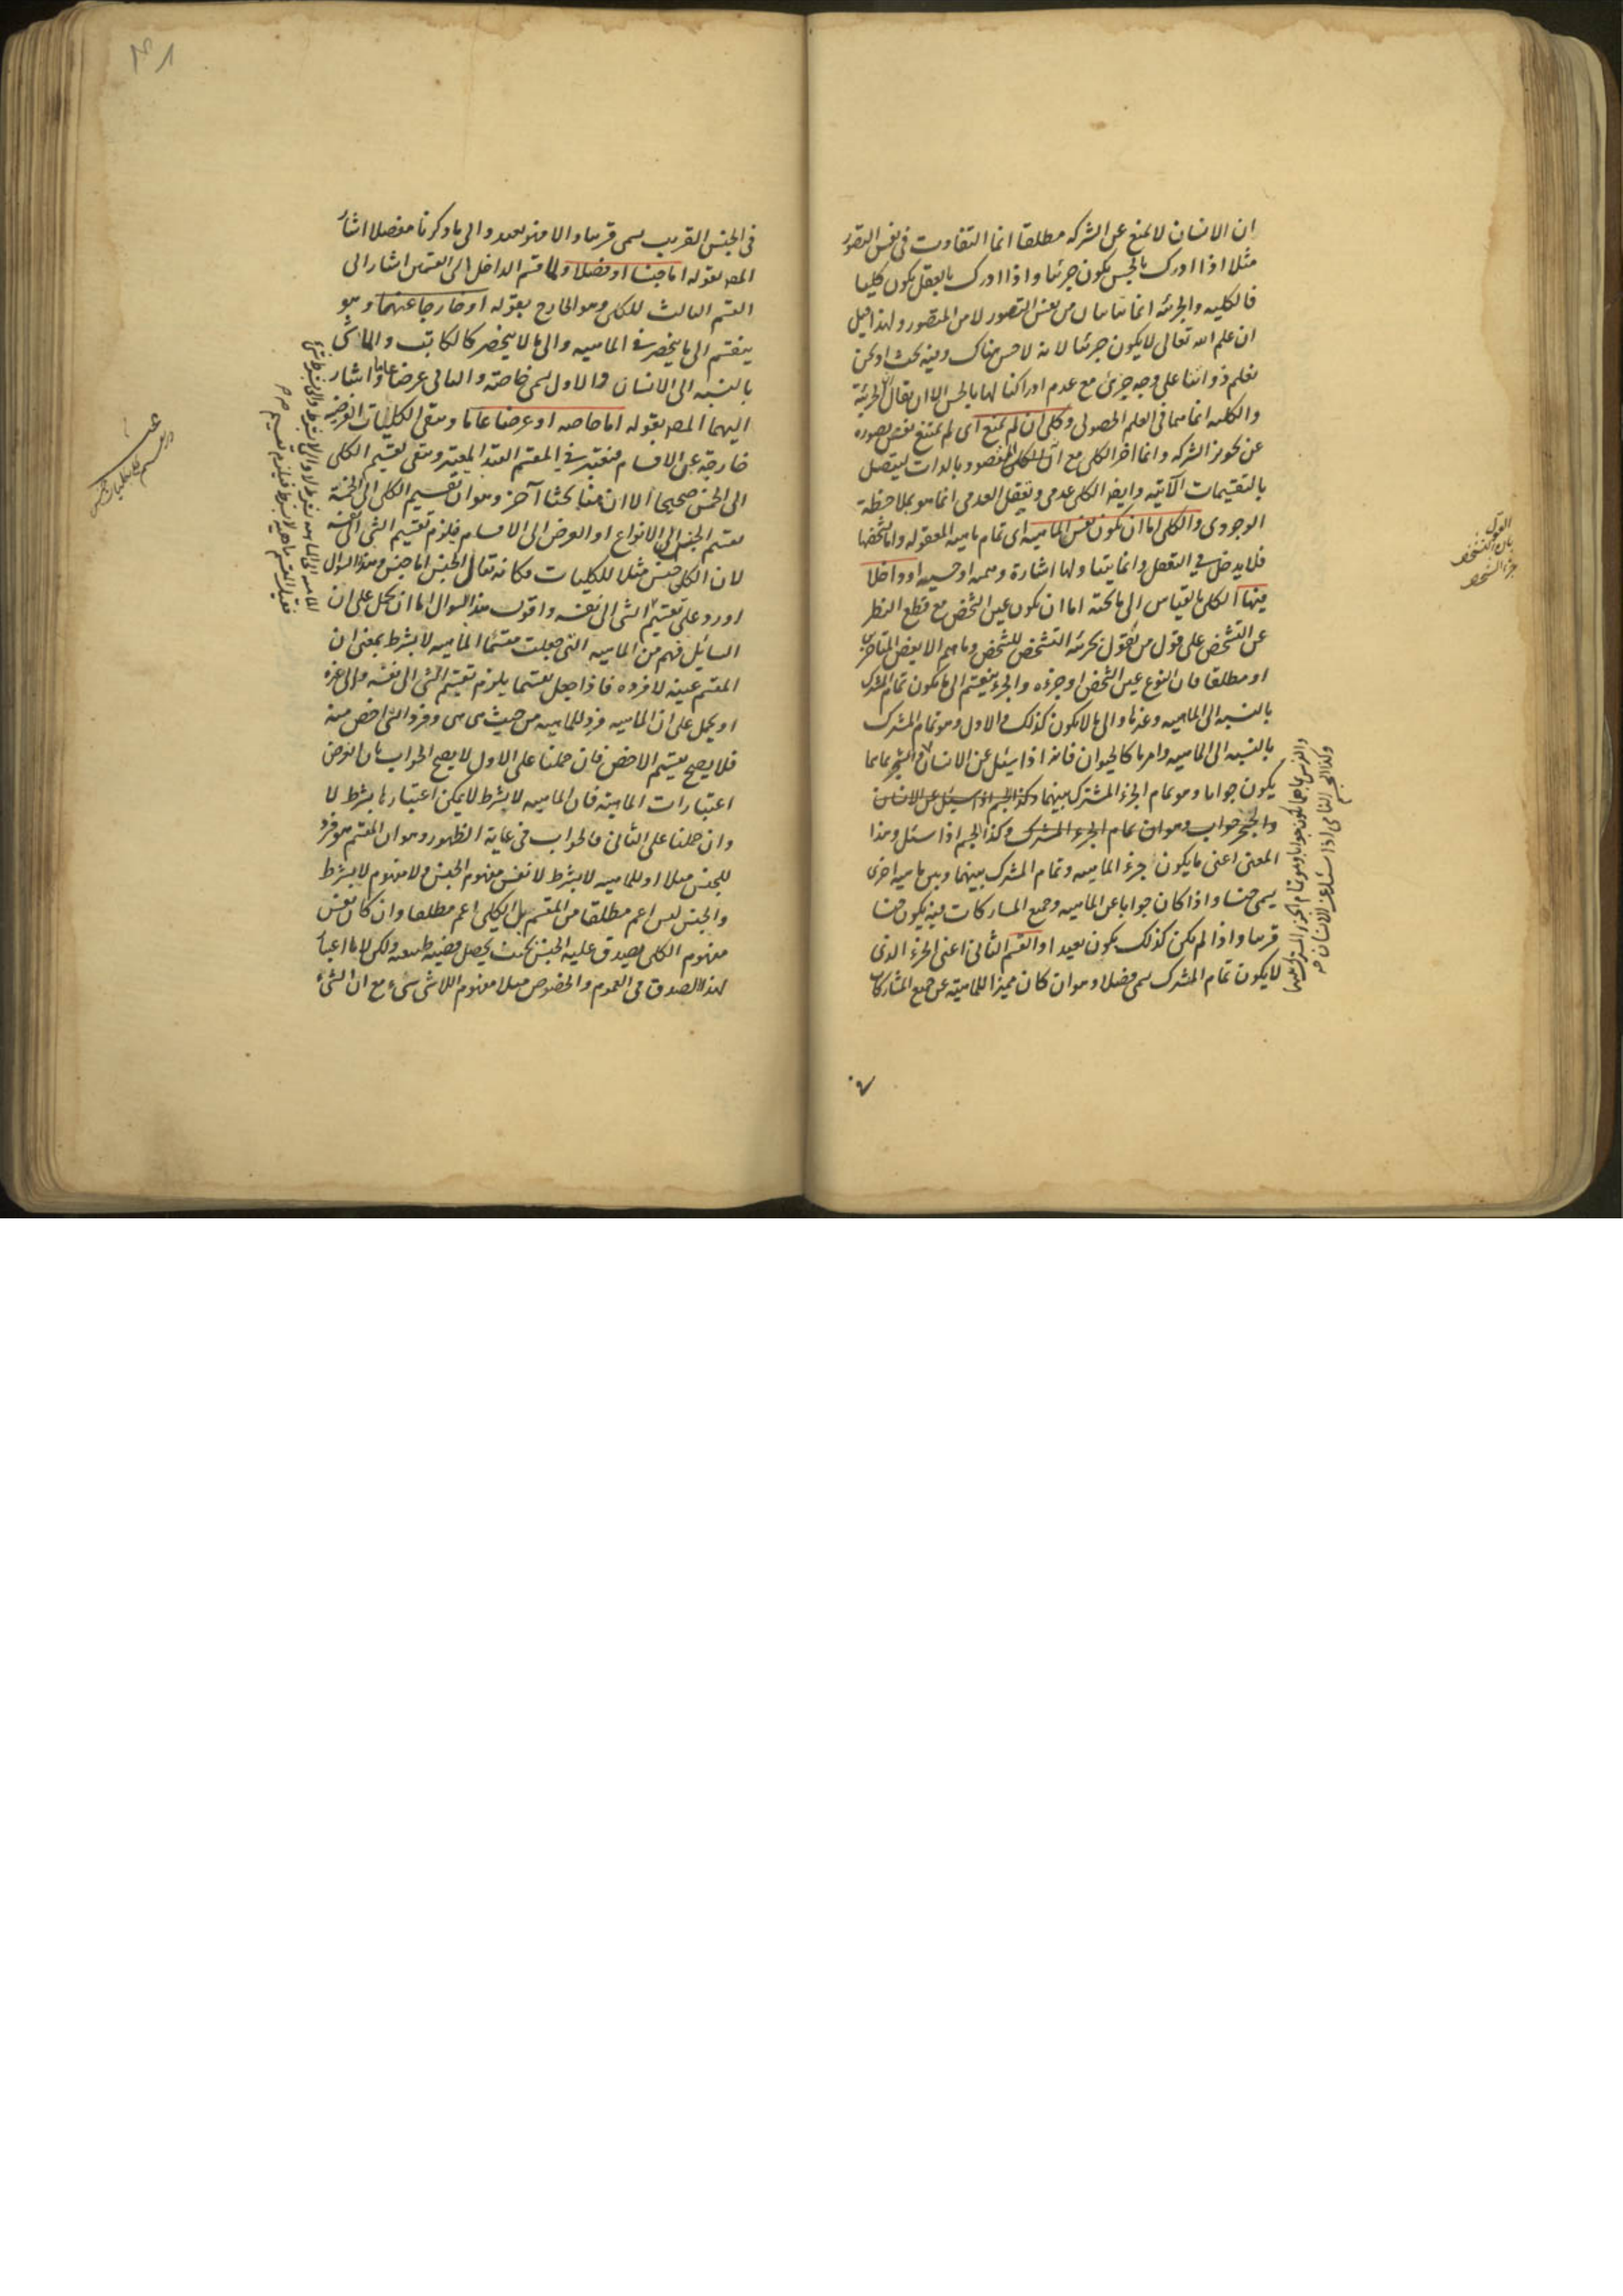 ان الانسان لا يمنع عن الشركه مطلقا انما التفاوت فى نفس التصور
مثلا اذا ادرك بالحس يكون جزئيا و اذا ادرك بالعقل يكون كليا
فالكليه والجزئيه انما من نفس التصور لا من المتصور ولهذا قيل
ان علم الله تعالى لا يكون جزئيا لانه لا حس هناك وفيه بحث اذ نحن
نعلم ذواتنا على وجه جزئى مع عدم ادراكنا لها بالحس الا ان يقال الجزئية
والكليه انما هما فى العلم الحصولى وكلى ان لم يمنع اى لم يمنع نفس تصوره
عن تجويز الشركه وانما اخر الكلى مع ان الكلى المقصود بالذات ليتصل
بالتقسيمات الآتية وايضا الكلى عدمى وتعقل العدمى انما هو بملاحظة
الوجودى والكلى اما ان يكون نفس الماهيه اى تمام ماهيه المعقوله واما تشخصها
فلا يدخل فى التعقل وانما يتبعها ولها اشارة وهميه او حسيه او داخلا
فيها الكلى بالقياس الى ما تحته اما ان يكون عين الشخص مع قطع النظر
عن التشخص على قول من يقول بجزئيه التشخص للشخص وما هم الا بعض المتاخرين
او مطلقا فان النوع عين الشخص او جزءه والجزء ينقسم الى ما يكون تمام المشترك
بالنسبه الى الماهيه وغيرها والى ما لا يكون كذلك والاول وهو تمام المشترك
بالنسبه الى الماهيه وامر ما كالحيوان فانه اذا سئل عن الانسان والشجر بما هما
يكون جوابا وهو تمام الجزء المشترك بينهما وكذا الجسم اذا سئل عن الانسان
والحجر جواب وهو ان تمام الجزء المشترك وكذا الجسم اذا سئل وهذا
المعنى اعنى ما يكون جزء الماهيه وتمام المشترك بينهما وبين ماهيه اخرى
يسمى جنسا و اذا كان جوابا عن الماهيه وجميع المشاركات فيه يكون جنسا
قريبا و اذا لم يكن كذلك يكون بعيدا و القسم الثانى اعنى الجزء الذى
لا يكون تمام المشترك يسمى فصلا وهو ان كان مميزا للماهيته عن جميع المشاركات
القول
بان التشخص
جزء الشخص
فى الجنس القريب يسمى قريبا والا فهو بعيد والى ما ذكرنا مفصلا اشار
المص بقوله اما جنسا او فصلا ولما قسم الداخل الى القسمين اشار الى
القسم الثالث للكلى وهو الخارج بقوله او خارجا عنهما وهو
ينقسم الى ما ينحصر فى الماهيه والى ما لا ينحصر كالكاتب والماشى
بالنسبه الى الانسان والاول يسمى خاصته والثانى عرضا عاما واشار
اليهما المص بقوله اما خاصه او عرضا عاما وتبقى الكليات الفرضيه
خارجة عن الاقسام فيعتبر فى المقسم القيد المعتبر وتبقى تقسيم الكلى
الى الخمس صحيحا الا ان هنا بحثا آخر وهو ان تقسيم الكلى الى الخمسة
تقسيم الجنس الى الانواع او العرض الى الاقسام فيلزم تقسيم الشى الى نفسه
لان الكلى جنس مثلا للكليات فكانه تعالى الجنس اما جنس وهذا السوال
اورد على تقسيم الشى الى نفسه واقول هذا السوال اما ان يحمل على ان
السائل فهم من الماهيه التى جعلت مقسما الماهيه لا بشرط بمعنى ان
المقسم عينه لا فرده فاذا جعل مقسما يلزم تقسيم الشى الى نفسه والى غيره
او يحمل على ان الماهيه فرد للماهيه من حيث هى هى وفرد الشى اخص منه
فلا يصح تقسيم الاخص فان حملنا على الاول لا يصح الجواب بان الغرض
اعتبارات الماهيته فان الماهيه لا بشرط لا يمكن اعتبارها بشرط لا
وان حملنا على الثانى فالجواب فى غاية الظهور وهو ان المقسم هو فرد
للجنس مثلا او للماهيه لا بشرط لا نفس مفهوم الجنس ولا مفهوم لا بشرط
والجنس ليس اعم مطلقا من المقسم بل الكلى اعم مطلقا وان كان نفس
مفهوم الكلى يصدق عليه الجنس بحيث يحصل قضيه طبيعيه ولكن لا اعتبار
لهذا الصدق فى العموم والخصوص مثلا مفهوم اللاشى شىء مع ان الشىء